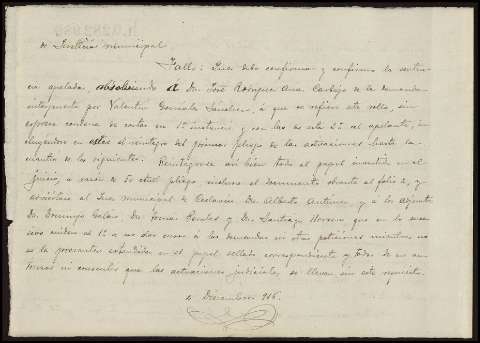 de Justicia municipal
Fallo: Que debo confirmar y confirmo la senten-
cia apelada, absolviendo a Dn. José Rodríguez de la demanda
interpuesta por Valentín González Sánchez, á que se refiere este rollo, sin
expresa condena de costas en 1ª instancia y con las de esta 2ª al apelante,
en estas el reintegro del primer pliego de las actuaciones hasta la
de los siguientes. Reintégrese en bien todo el papel invertido en el
juicio, á razón de pliego, incluso el documento obrante al folio 2, y
al Juez municipal de Dn. Alberto Antúnez y á los adjuntos
Dn. Domingo Dn. Tomás y Dn. Santiago Herrero que en lo suce-
sivo cuiden el 1º a no dar curso á las demandas ni otras peticiones mientras no
se le presenten extendidas en el papel sellado correspondiente y todos de no au-
torizar ni consentir que las actuaciones judiciales, se lleven sin este requisito.
Diciembre 916.